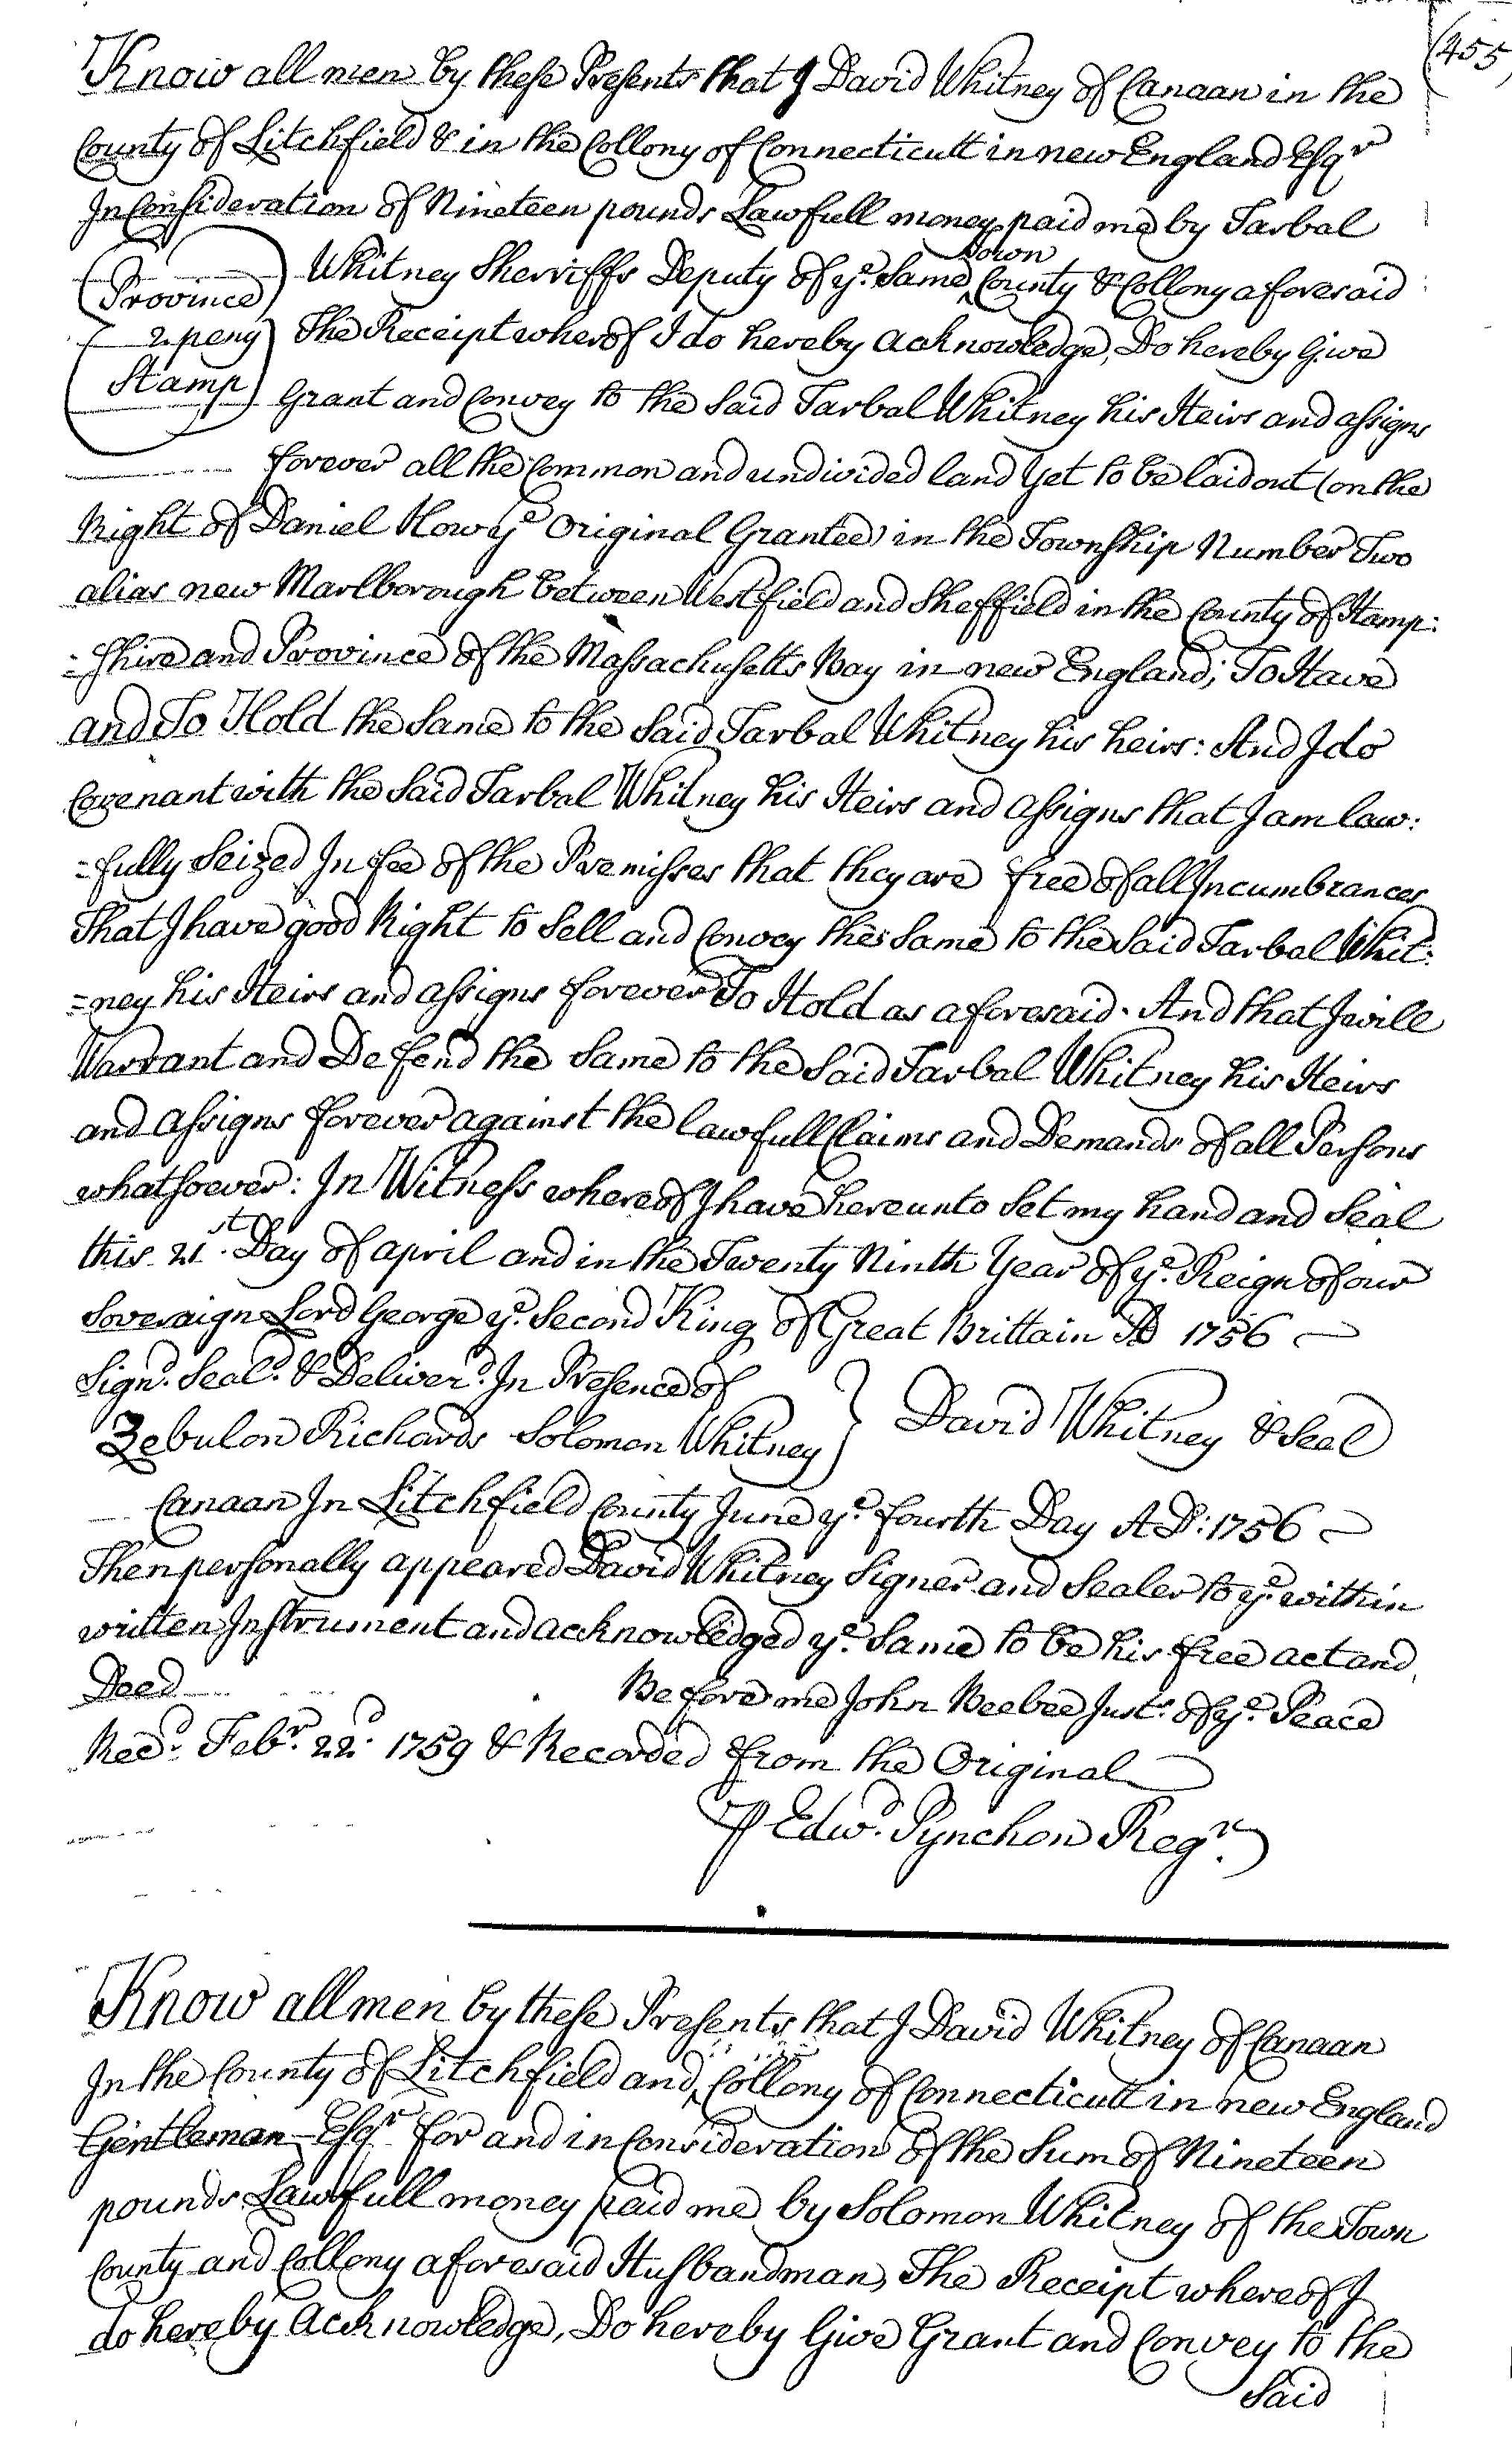 (455
Know all men by these Presents that I David Whitney of Canaan in the
County of Litchfield & in the Collony of Connecticutt in new England Esqr
In Consideration of Nineteen pounds Lawfull money paid me by Tarbal
Town
Whitney Sherriffs Deputy of ye. Same County & Collony aforesaid
(Province)
The Receipt wherof I do hereby acknowledge, Do hereby Give
2 peny
Grant and Convey to the Said Tarbal Whitney his Heirs and assigns
Stamp
forever all the Common and undivided land yet to be laid out (on the
Right of Daniel How ye Original Grantee) in the Township Number Two
alias new Marlborough between Westfield and Sheffield in the County of Hamp:
=shire and Province of the Massachusetts Bay in new England; To Have
and To Hold the Same to the Said Tarbal Whitney his heirs: And I do
Covenant with the Said Tarbal Whitney his Heirs and assigns that I am law:
=fully Seized In fee of the Premisses that they are free of all Incumbrances
That I have good Right to Sell and Convey the Same to the Said Tarbal Whit:
=ney his Heirs and assigns forever To Hold as aforesaid. And that I will
Warrant and Defend the Same to the Said Tarbal Whitney his Heirs
and assigns forever against the lawfull Claims and Demands of all Persons
whatsoever: In Witness whereof I have hereunto Set my hand and Seal
this 21st. Day of april and in the Twenty Ninth Year of ye. Reign of our
Soveraign Lord George ye. Second King of Great Brittain AD 1756
Signd. Seald. & Deliverd. In Presence of
Zebulon Richards Solomon Whitney } David Whitney & Seal
Canaan In Litchfield County June ye. fourth Day AD: 1756
Then personally appeared David Whitney Signer and Sealer to ye. within
written Instrument and acknowledged ye. Same to be his free act and
Deed Before me John Beebee Just. of ye. Peace
Recd. Febr. 22d. 1759 & Recorded from the Original
P Edwd. Pynchon Regr.
Know all men by these Presents, that I David Whitney of Canaan
In the County of Litchfield and Collony of Connecticutt in new England
Gentleman Esqr for and in Consideration of the Sum of Nineteen
pounds Lawfull money paid me by Solomon Whitney of the Town
County and Collony aforesaid Husbandman, The Receipt whereof I
do hereby Acknowledge, Do hereby Give Grant and Convey to the
Said